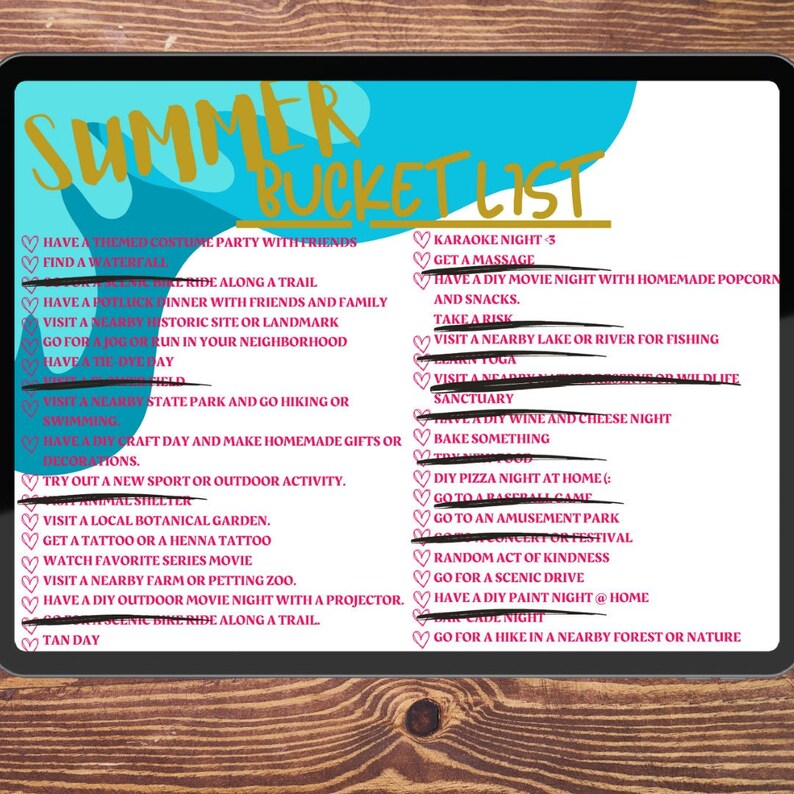 SUMMER
BUCKET LIST
HAVE A THEMED COSTUME PARTY WITH FRIENDS
FIND A WATERFALL
GO FOR A SCENIC BIKE RIDE ALONG A TRAIL
HAVE A POTLUCK DINNER WITH FRIENDS AND FAMILY
VISIT A NEARBY HISTORIC SITE OR LANDMARK
GO FOR A JOG OR RUN IN YOUR NEIGHBORHOOD
HAVE A TIE-DYE DAY
VISIT A FLOWER FIELD
VISIT A NEARBY STATE PARK AND GO HIKING OR
SWIMMING.
HAVE A DIY CRAFT DAY AND MAKE HOMEMADE GIFTS OR
DECORATIONS.
TRY OUT A NEW SPORT OR OUTDOOR ACTIVITY.
VISIT ANIMAL SHELTER
VISIT A LOCAL BOTANICAL GARDEN.
GET A TATTOO OR A HENNA TATTOO
WATCH FAVORITE SERIES MOVIE
VISIT A NEARBY FARM OR PETTING ZOO.
HAVE A DIY OUTDOOR MOVIE NIGHT WITH A PROJECTOR.
GO FOR A SCENIC BIKE RIDE ALONG A TRAIL.
TAN DAY
KARAOKE NIGHT <3
GET A MASSAGE
HAVE A DIY MOVIE NIGHT WITH HOMEMADE POPCORN
AND SNACKS.
TAKE A RISK
VISIT A NEARBY LAKE OR RIVER FOR FISHING
LEARN YOGA
VISIT A NEARBY NATURE RESERVE OR WILDLIFE
SANCTUARY
HAVE A DIY WINE AND CHEESE NIGHT
BAKE SOMETHING
TRY NEW FOOD
DIY PIZZA NIGHT AT HOME (:
GO TO A BASEBALL GAME
GO TO AN AMUSEMENT PARK
GO TO A CONCERT OR FESTIVAL
RANDOM ACT OF KINDNESS
GO FOR A SCENIC DRIVE
HAVE A DIY PAINT NIGHT @ HOME
BAR-CADE NIGHT
GO FOR A HIKE IN A NEARBY FOREST OR NATURE